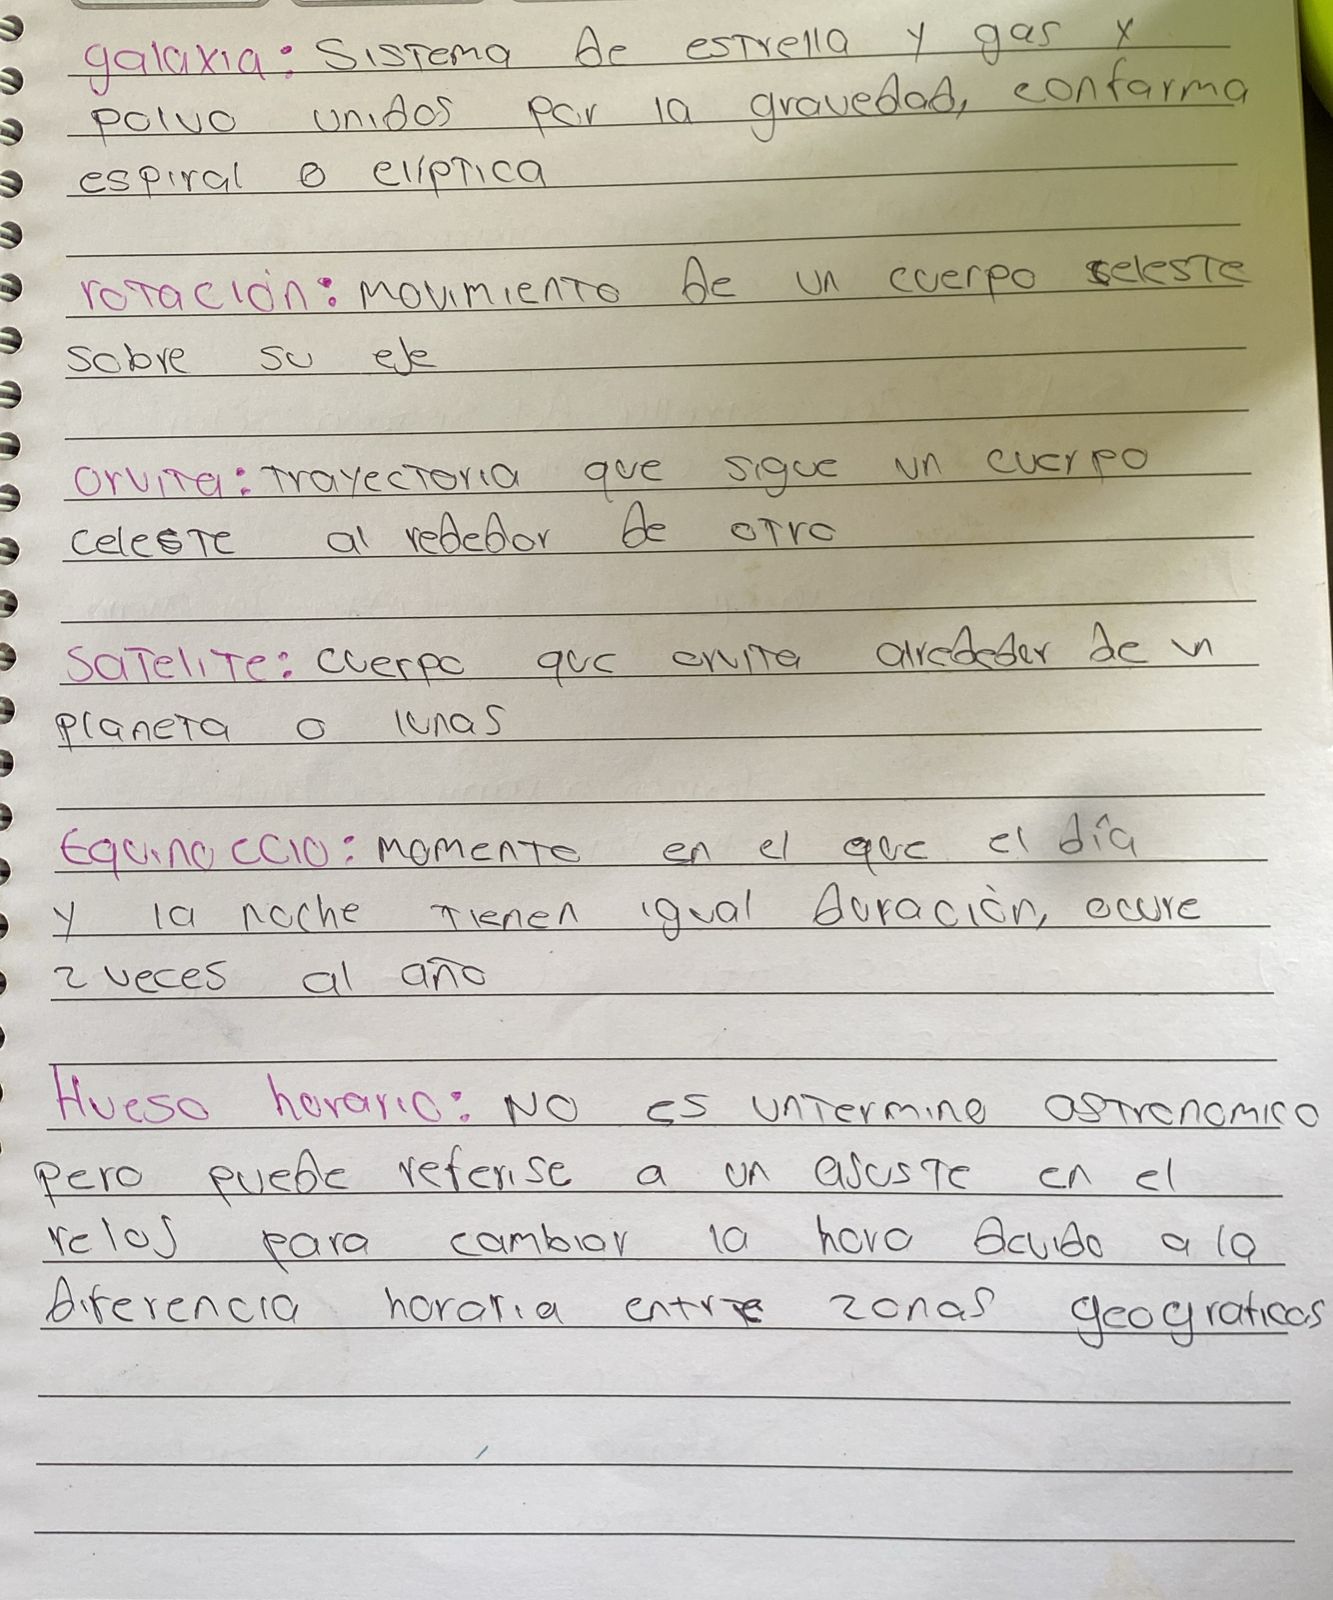 galaxia: Sistema de estrella y gas y
polvo unidos por la gravedad, conforma
espiral o elíptica
rotación: movimiento de un cuerpo seleste
sobre su eje
orvita: trayectoria que sigue un cuerpo
celeste al rededor de otro
Satelite: cuerpo que orvita alrededer de un
planeta o lunas
Equinoccio: momento en el que el día
y la noche tienen igual duración, ocure
2 veces al año
Hueso horario: NO es untermino astronomico
pero puede referise a un ajuste en el
reloj para cambiar la hora deuido a la
diferencia horaria entre zonas geograficas